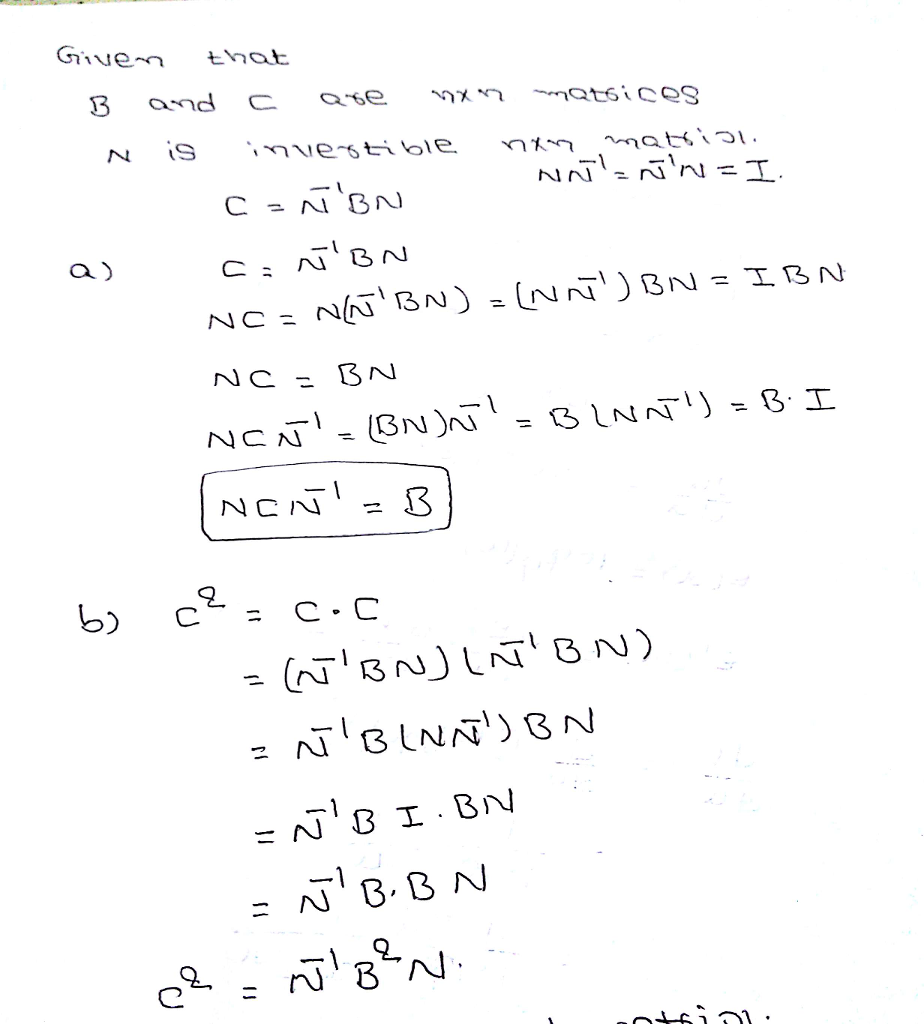 Given that
B and C are nxn matrices
N is invertible nxn matrix.
NN⁻¹ = N⁻¹N = I.
C = N⁻¹BN
a) C = N⁻¹BN
NC = N(N⁻¹BN) = (NN⁻¹)BN = IBN
NC = BN
NCN⁻¹ = (BN)N⁻¹ = B(NN⁻¹) = B·I
NCN⁻¹ = B
b) C² = C·C
= (N⁻¹BN)(N⁻¹BN)
= N⁻¹B(NN⁻¹)BN
= N⁻¹B I.BN
= N⁻¹B.BN
C² = N⁻¹B²N.